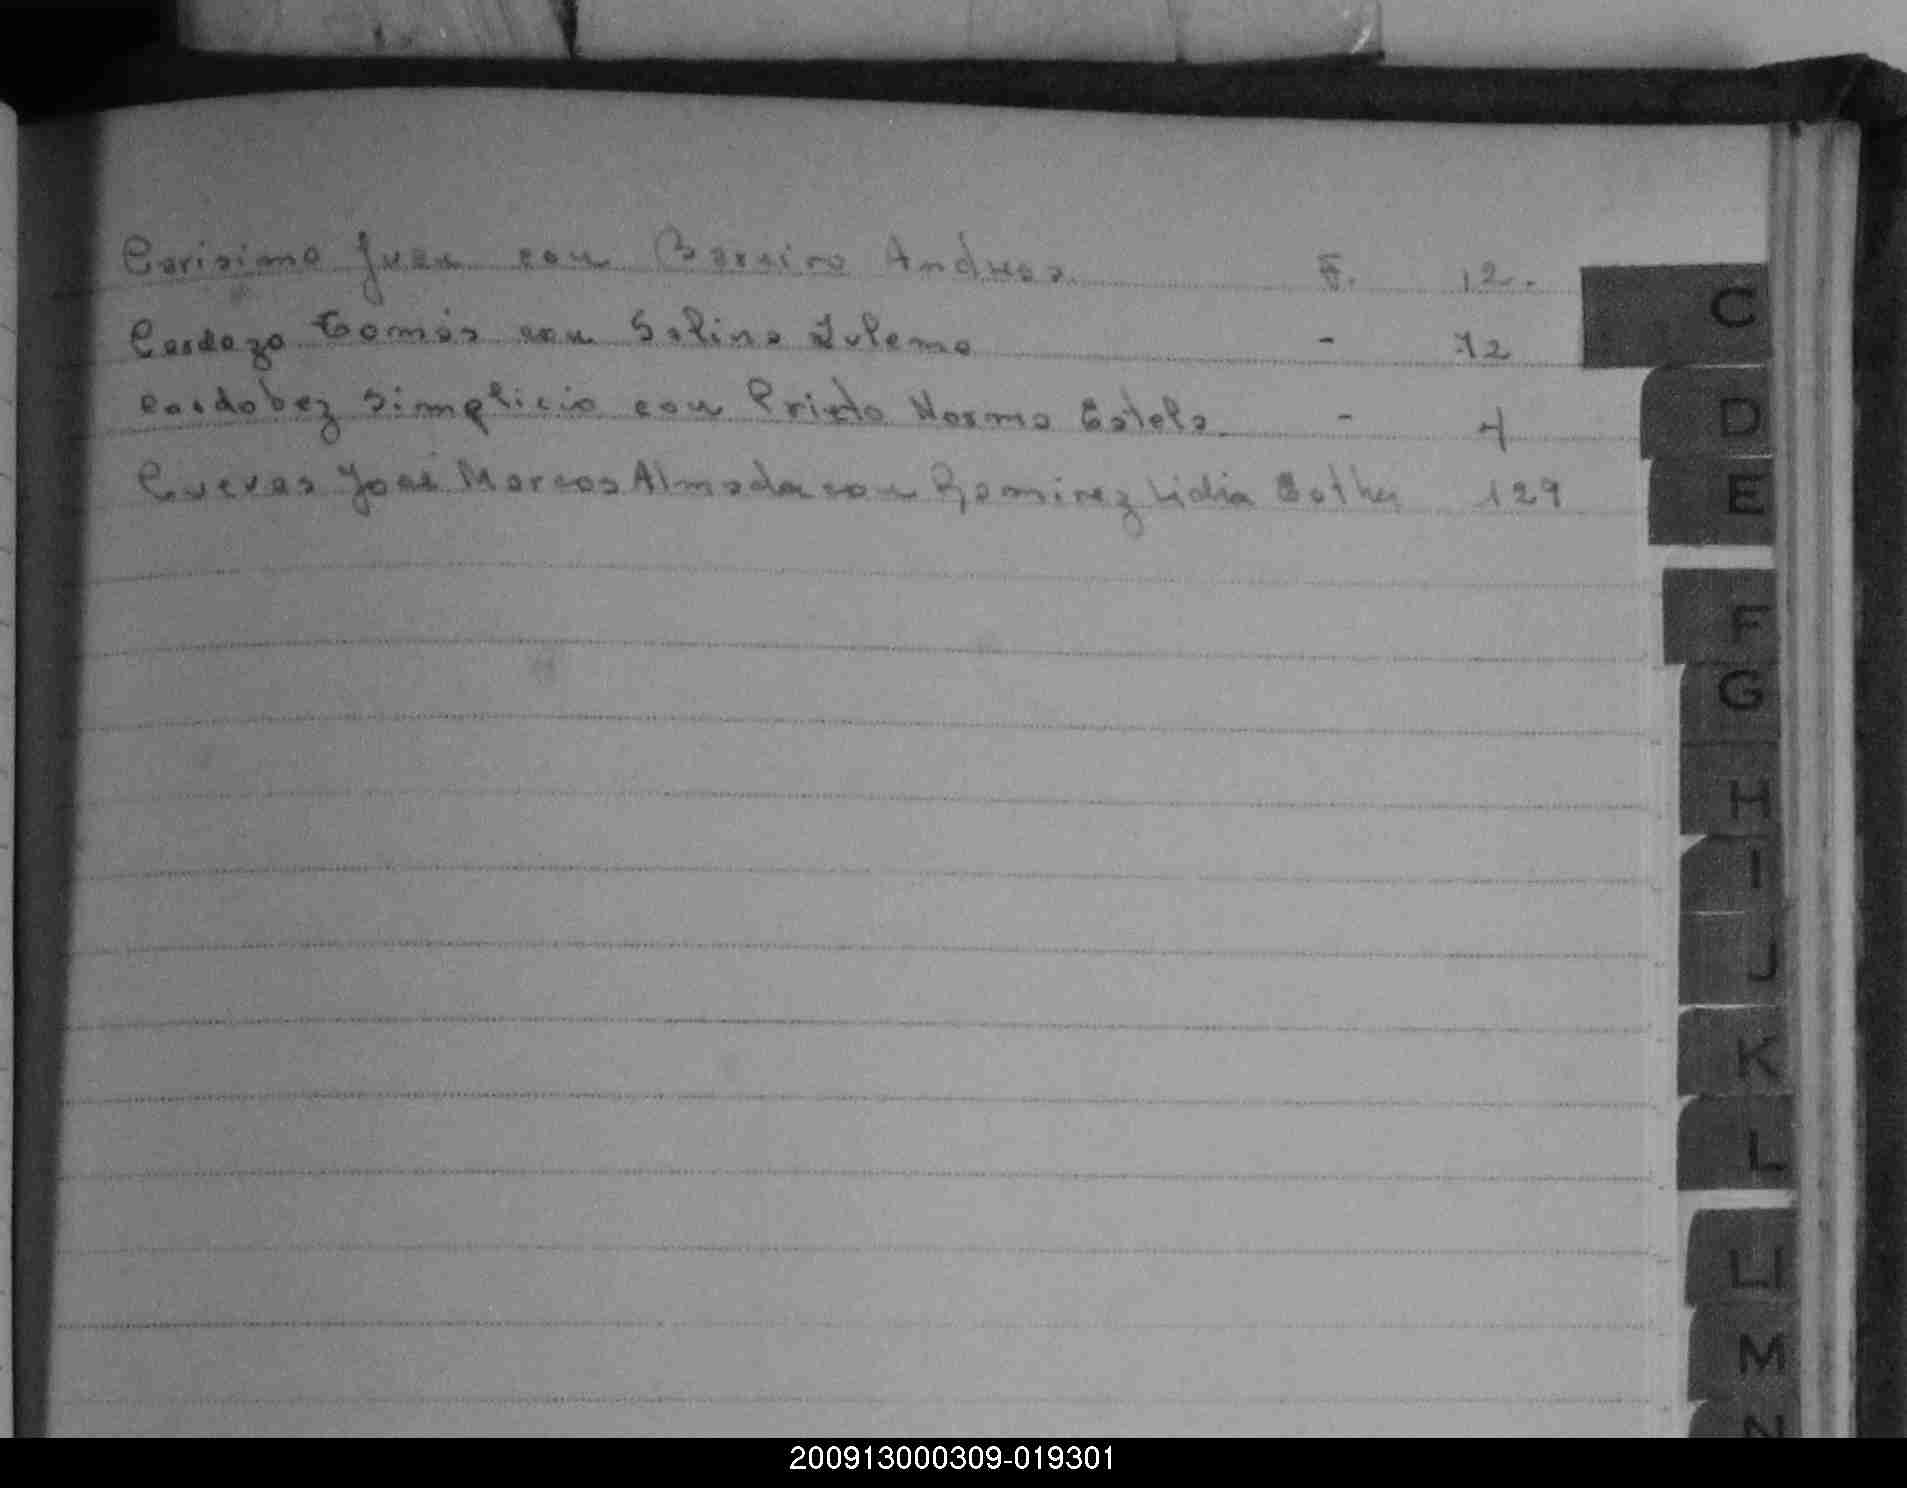 Carisimo Juan con Barreiro Andrea F. 12.
Cardozo Tomás con Salina Zulema - 72
Cardobez Simplicio con Prieto Norma Estela - 4
Cuevas José Marcos Almada con Ramirez Lidia Esther 129
C
D
E
F
G
H
I
J
K
L
Ll
M
N
200913000309-019301